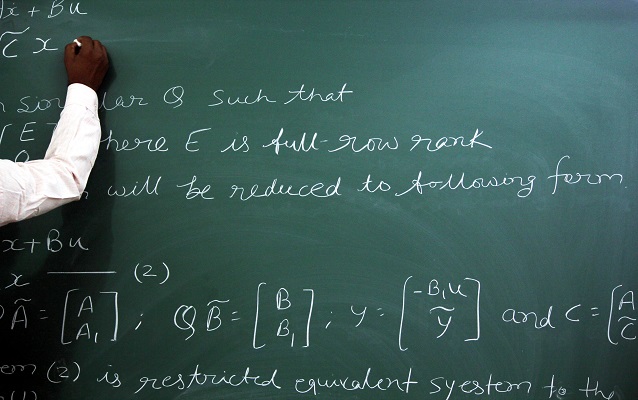 Ax + Bu
C̃ x
singular Q such that
[E here E is full-row rank
will be reduced to following form.
x + Bu
x ——— (2)
Ã = [A A₁] ; Q B̃ = [B B₁] ; y = [-B₁u ỹ] and C = [A C̃
(2) is restricted equivalent syestem to the
(1)